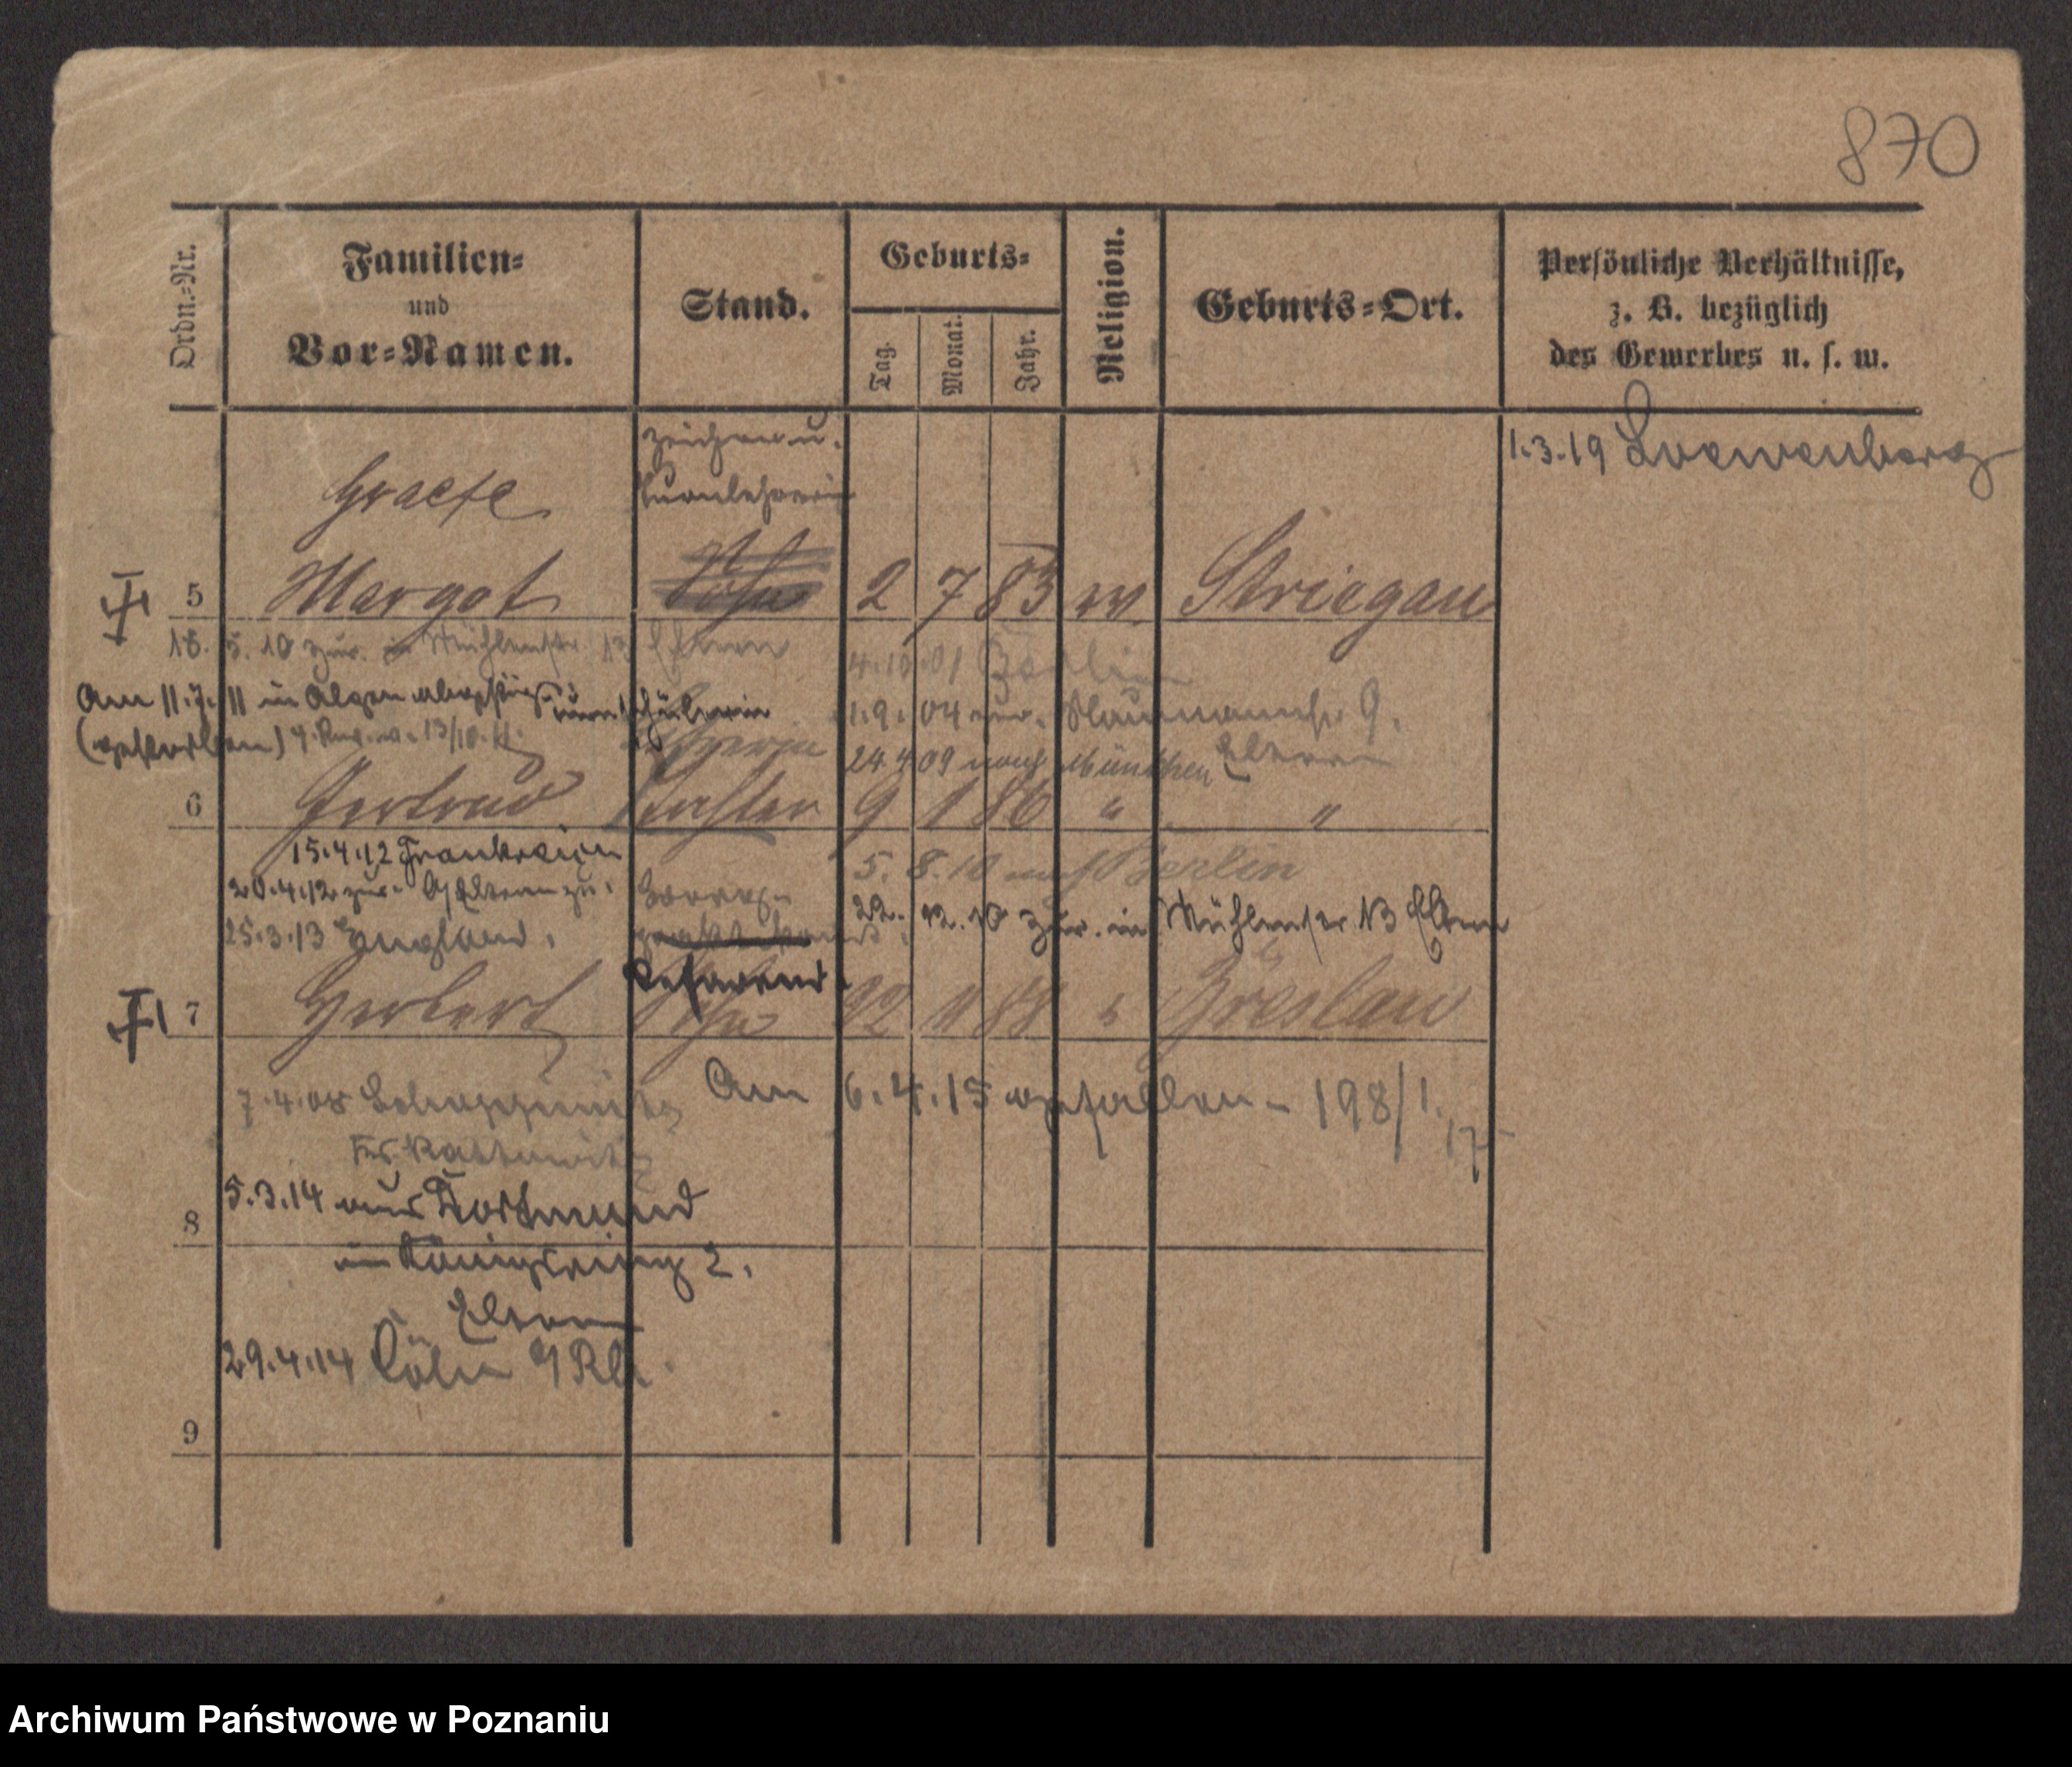 870
Ordn.-Nr.
Familien-
und
Vor-Namen.
Stand.
Geburts-
Tag.
Monat.
Jahr.
Religion.
Geburts-Ort.
Persönliche Verhältnisse,
z. B. bezüglich
des Gewerbes u. s. w.
Zeichen u.
1.3.19 Loewenberg
Graefe Turnlehrerin
5 Margot 2 7 83 ev. Striegau
18. 5. 10 zur. in Mühlenstr 13 Eltern
4.10.01 Berlin
Am 11.7.11 in Alpen abgestürzt
1.9.04 zur. Naumannstr 9.
(gestorben) 13/10.11.
24.4.09 nach München Eltern
6 Gertrud Tochter 9 1 86 " "
15.4.12 Frankreich
5. 8. 10 nach Berlin
20.4.12 zur. Eltern zu.
22. 12. 10 zur. in Mühlenstr 13 Eltern
25.3.13 England.
Referend.
7 Herbert Sohn 22 11 88 Breslau
7.4.08
Am 6.4.15 gefallen - 198/1.
17
Kr. Kattowitz
5.3.14 aus Dortmund
8
in Königsring 2.
Eltern
29.4.14 Cöln a/Rh.
9
Archiwum Państwowe w Poznaniu